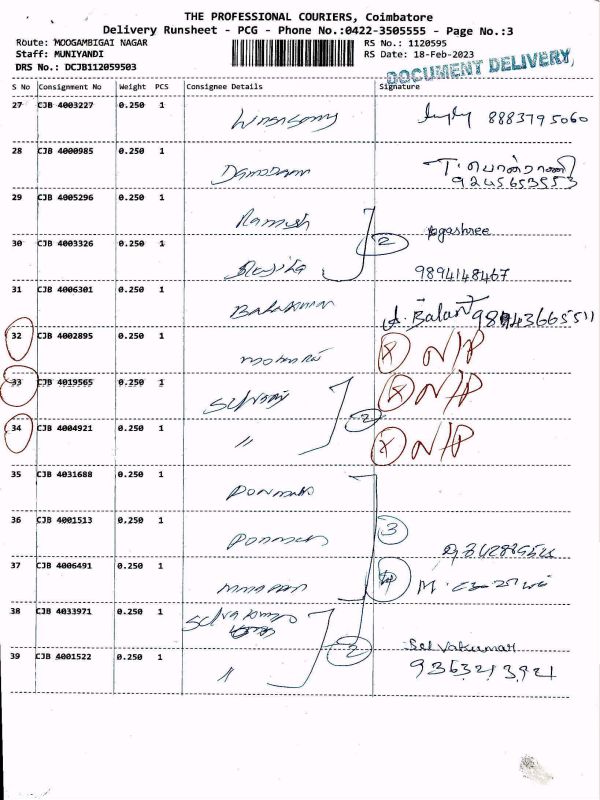 THE PROFESSIONAL COURIERS, Coimbatore
Delivery Runsheet - PCG - Phone No.:0422-3505555 - Page No.:3
Route: MOOGAMBIGAI NAGAR RS No.: 1120595
Staff: MUNIYANDI RS Date: 18-Feb-2023
DRS No.: DCJB112059503
DOCUMENT DELIVERY
S No Consignment No Weight PCS Consignee Details Signature
27 CJB 4003227 0.250 1 8883795060
28 CJB 4000985 0.250 1 Damodaran T. பொன்ராணி
9245653553
29 CJB 4005296 0.250 1 Ramesh Yogashree
2
30 CJB 4003326 0.250 1 9894148467
31 CJB 4006301 0.250 1 Balakumar A. Balan
32 CJB 4002895 0.250 1 X N/P
33 CJB 4019565 0.250 1 X N/P
2
34 CJB 4004921 0.250 1 " X N/P
35 CJB 4031688 0.250 1
36 CJB 4001513 0.250 1 3
37 CJB 4006491 0.250 1 M.
38 CJB 4033971 0.250 1 Selvakumar Selvakumar
2
39 CJB 4001522 0.250 1 " 9363213921